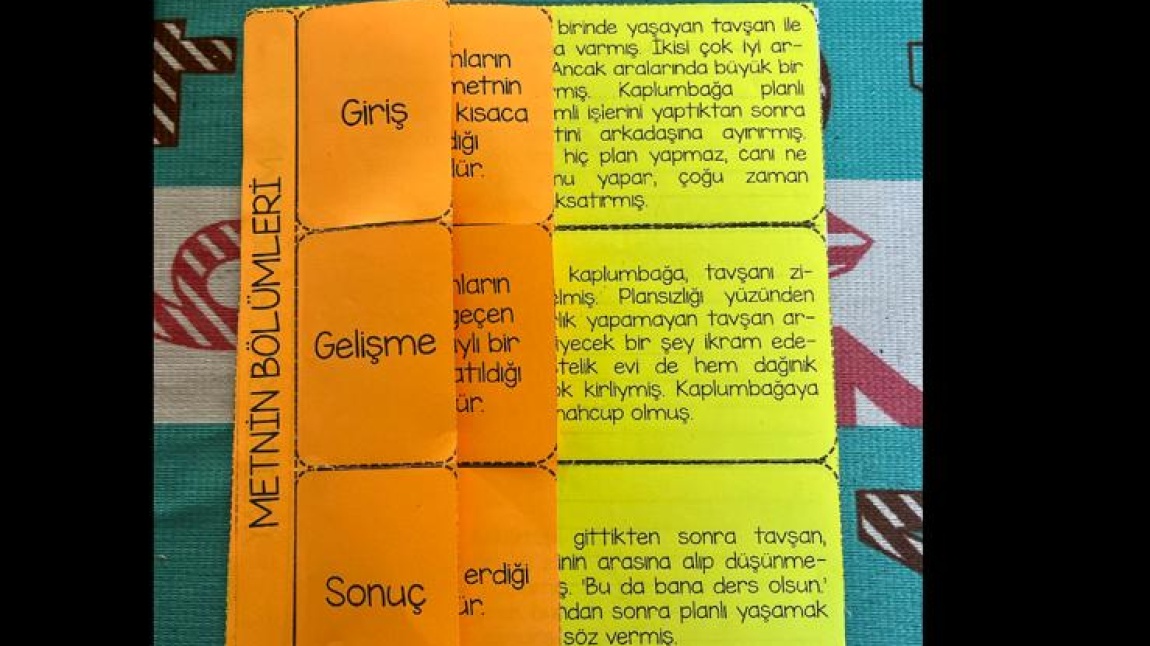 METNİN BÖLÜMLERİ
Giriş
nların
metnin
kısaca
dığı
lür.
birinde yaşayan tavşan ile
a varmış. İkisi çok iyi ar-
Ancak aralarında büyük bir
rmiş. Kaplumbağa planlı
mli işlerini yaptıktan sonra
tini arkadaşına ayırırmış.
hiç plan yapmaz, canı ne
nu yapar, çoğu zaman
ksatırmış.
Gelişme
nların
geçen
aylı bir
atıldığı
ür.
kaplumbağa, tavşanı zi-
elmiş. Plansızlığı yüzünden
lık yapamayan tavşan ar-
iyecek bir şey ikram ede-
stelik evi de hem dağınık
ok kirliymiş. Kaplumbağaya
mahcup olmuş.
Sonuç
erdiği
ür.
gittikten sonra tavşan,
inin arasına alıp düşünme-
ş. 'Bu da bana ders olsun.'
ndan sonra planlı yaşamak
söz vermiş.